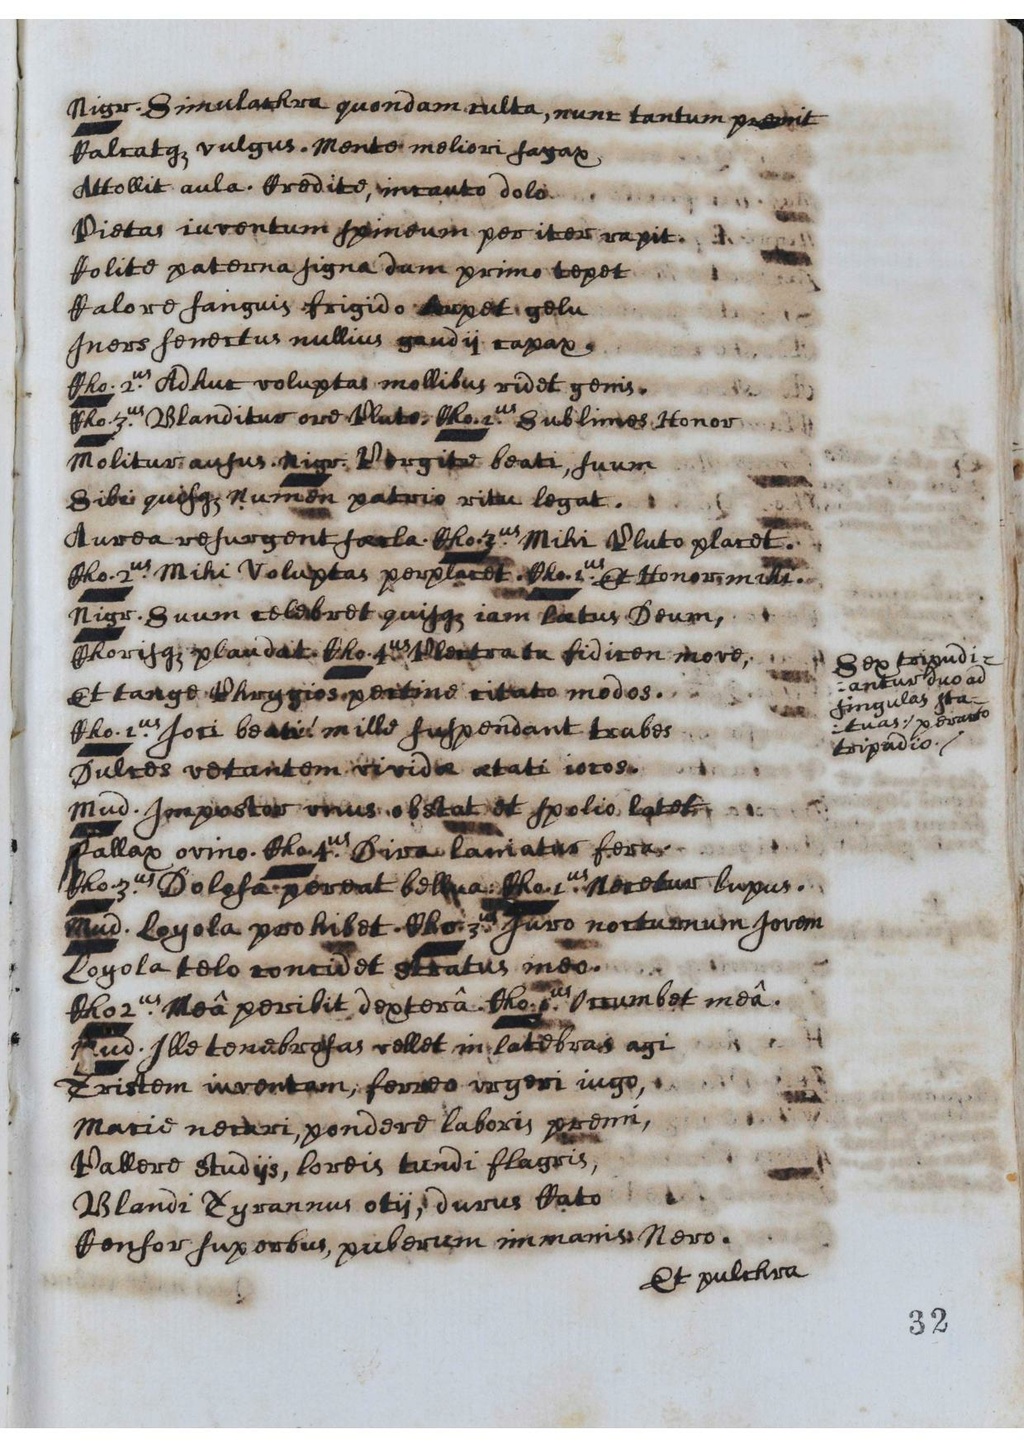 Nigr. Simulachra quondam culta, nunc tantum premit
Calcatq; vulgus. Mente meliori sagax
Attollit aula. Credite, incauto dolo
Pietas iuventum spineum per iter rapit.
Colite paterna signa dum primo tepet
Calore sanguis frigido torpet gelu
Iners senectus nullius gaudij capax.
Cho. 2.us Adhuc voluptas mollibus ridet genis.
Cho. 3.us Blanditur ore Pluto. Cho. 1.us Sublimes Honor
Molitur ausus. Nigr. Pergite beati, suum
Sibi quisq; Numen patrio ritu legat.
Aurea resurgent saecla. Cho. 3.us Mihi Pluto placet.
Cho. 2.us Mihi Voluptas perplacet. Cho. 1.us Et Honor mihi.
Nigr. Suum celebret quisq; iam laetus Deum,
Chorisq; plaudat. Cho. 4.us Plectra tu fidicen move,
Et tange Phrygios pectine citato modos.
Cho. 1.us Ioci beati! mille suspendant trabes
Dulces vetantem vividae aetati iocos.
Mud. Impostor unus obstat et spolio latet
Fallax ovino. Cho. 4.us Dira laniatur fera.
Cho. 3.us Dolosa pereat bellua. Cho. 1.us Necetur lupus.
Mud. Loyola prohibet. Cho. 3.us Iuro nocturnum Iovem
Loyola telo concidet stratus meo.
Cho 2.us Meâ peribit dexterâ. Cho. 1.us Occumbet meâ.
Mud. Ille tenebrosas vellet in latebras agi
Tristem iuventam, ferreo urgeri iugo,
Macie necari, pondere laboris premi,
Pallere studijs, loreis tundi flagris,
Blandi Tyrannus otij, durus Cato
Censor superbus, puberum immanis Nero.
Et pulchra
Sex tripudi-
-antur duo ad
singulas sta-
-tuas: peracto
tripudio.
32